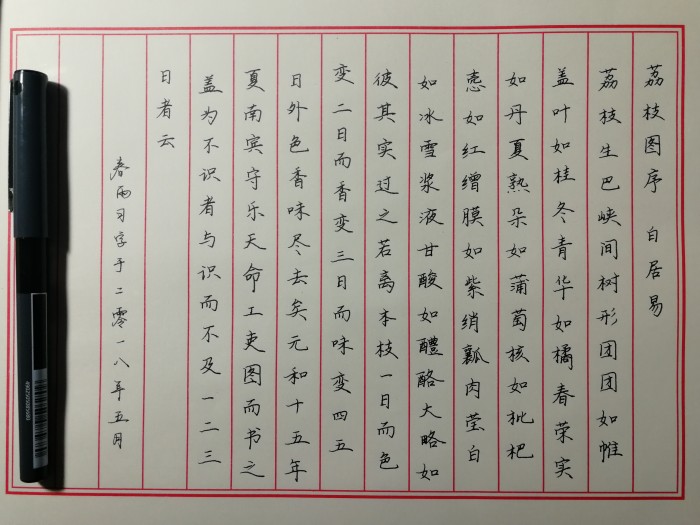 荔枝图序 白居易
荔枝生巴峡间树形团团如帷
盖叶如桂冬青华如橘春荣实
如丹夏熟朵如蒲萄核如枇杷
壳如红缯膜如紫绡瓤肉莹白
如冰雪浆液甘酸如醴酪大略如
彼其实过之若离本枝一日而色
变二日而香变三日而味变四五
日外色香味尽去矣元和十五年
夏南宾守乐天命工吏图而书之
盖为不识者与识而不及一二三
日者云
春雨习字于二零一八年五月